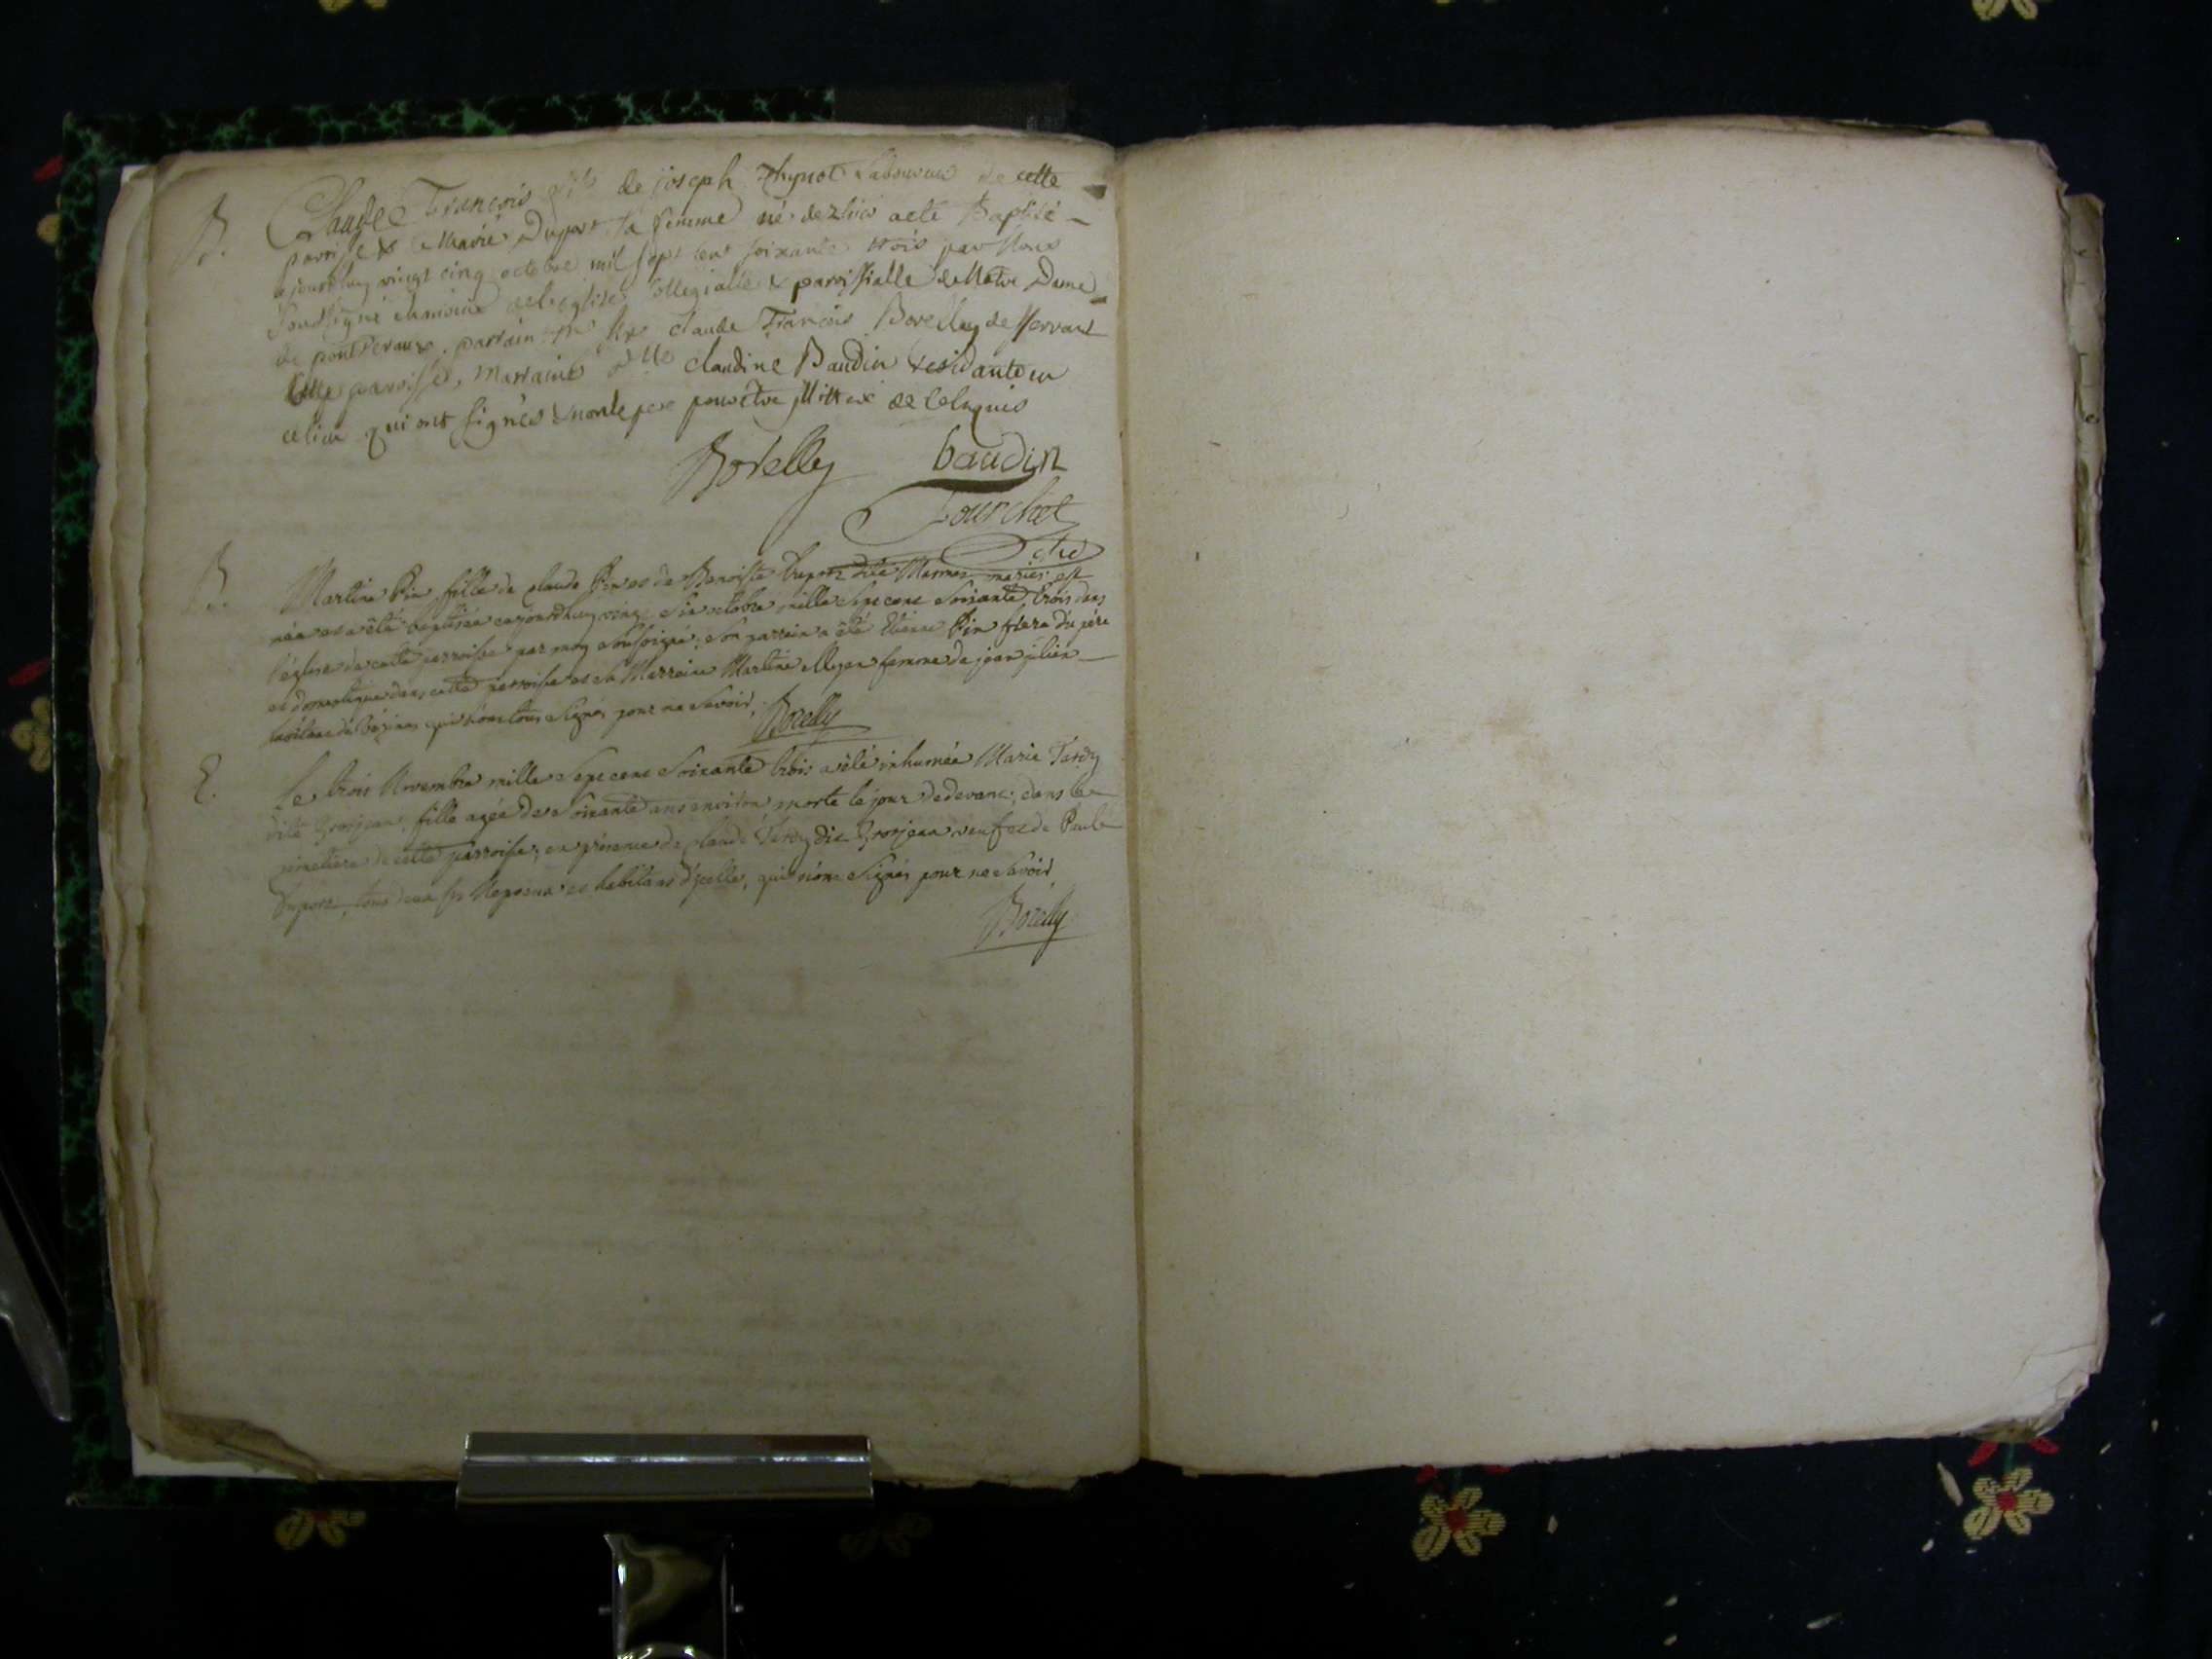 B. Claude François fils de joseph Thynot Laboureur de cette
paroisse & Marie Duport sa femme né dezhier a eté Baptisé
ajourdhuy vingt cinq octobre mil sept cent soixante trois par Nous
Soussigné chanoine de l'eglise Collegialle & paroissialle de Notre Dame
de pont devaux. parrain claude François Borelly desservant
cette paroisse, marraine dlle claudine Baudin residante en
ce lieu qui ont signés & non le pere pour être illitteré de ce enquis
Borelly baudin
Tourchet
B. Martine Pin fille de claude Pin et de Benoiste Duport dite mariés est
née et a été baptisée cejourdhuy vingt Six octobre mille Sept cent Soixante trois dans
l'église de cette parroisse par moy Soussigné, Son parrain a été Etienne Pin frere du pére
et domestique dans cette parroisse et sa Marraine Martine Meyer femme de jean
habitans de qui n'ont tous Signés pour ne Savoir. Borelly
E. Le trois Novembre mille Sept cent Soixante trois a été inhumée Marie Tardy
dite Grosjean, fille agée de Soixante ans environ morte le jour de devant, dans le
cimetiere de cette parroisse, en présence de claude Tardy dit Grosjean veuf et de Paul
Duport, tous deux et habitans d'jcelle, qui n'ont Signés pour ne Savoir
Borelly